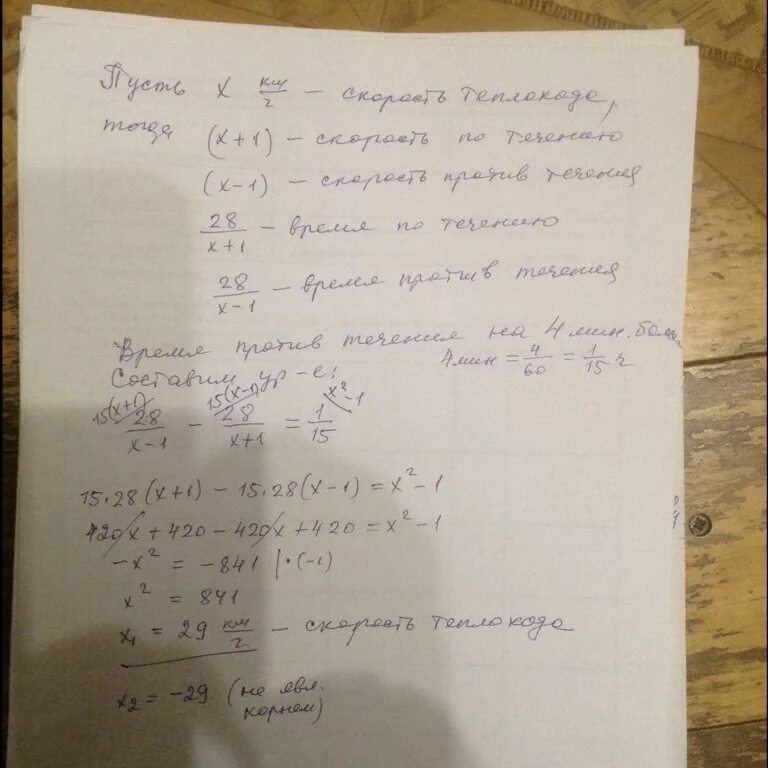 Пусть x км/ч – скорость теплохода,
тогда (x+1) – скорость по течению
(x-1) – скорость против течения
28/(x+1) – время по течению
28/(x-1) – время против течения
Время против течения на 4 мин. более
4 мин = 4/60 = 1/15 ч
Составим ур-е:
15(x+1) 15(x-1) x²-1
28/(x-1) - 28/(x+1) = 1/15
15·28(x+1) - 15·28(x-1) = x²-1
420x + 420 - 420x + 420 = x²-1
-x² = -841 |·(-1)
x² = 841
x₁ = 29 км/ч – скорость теплохода
x₂ = -29 (не явл.
корнем)